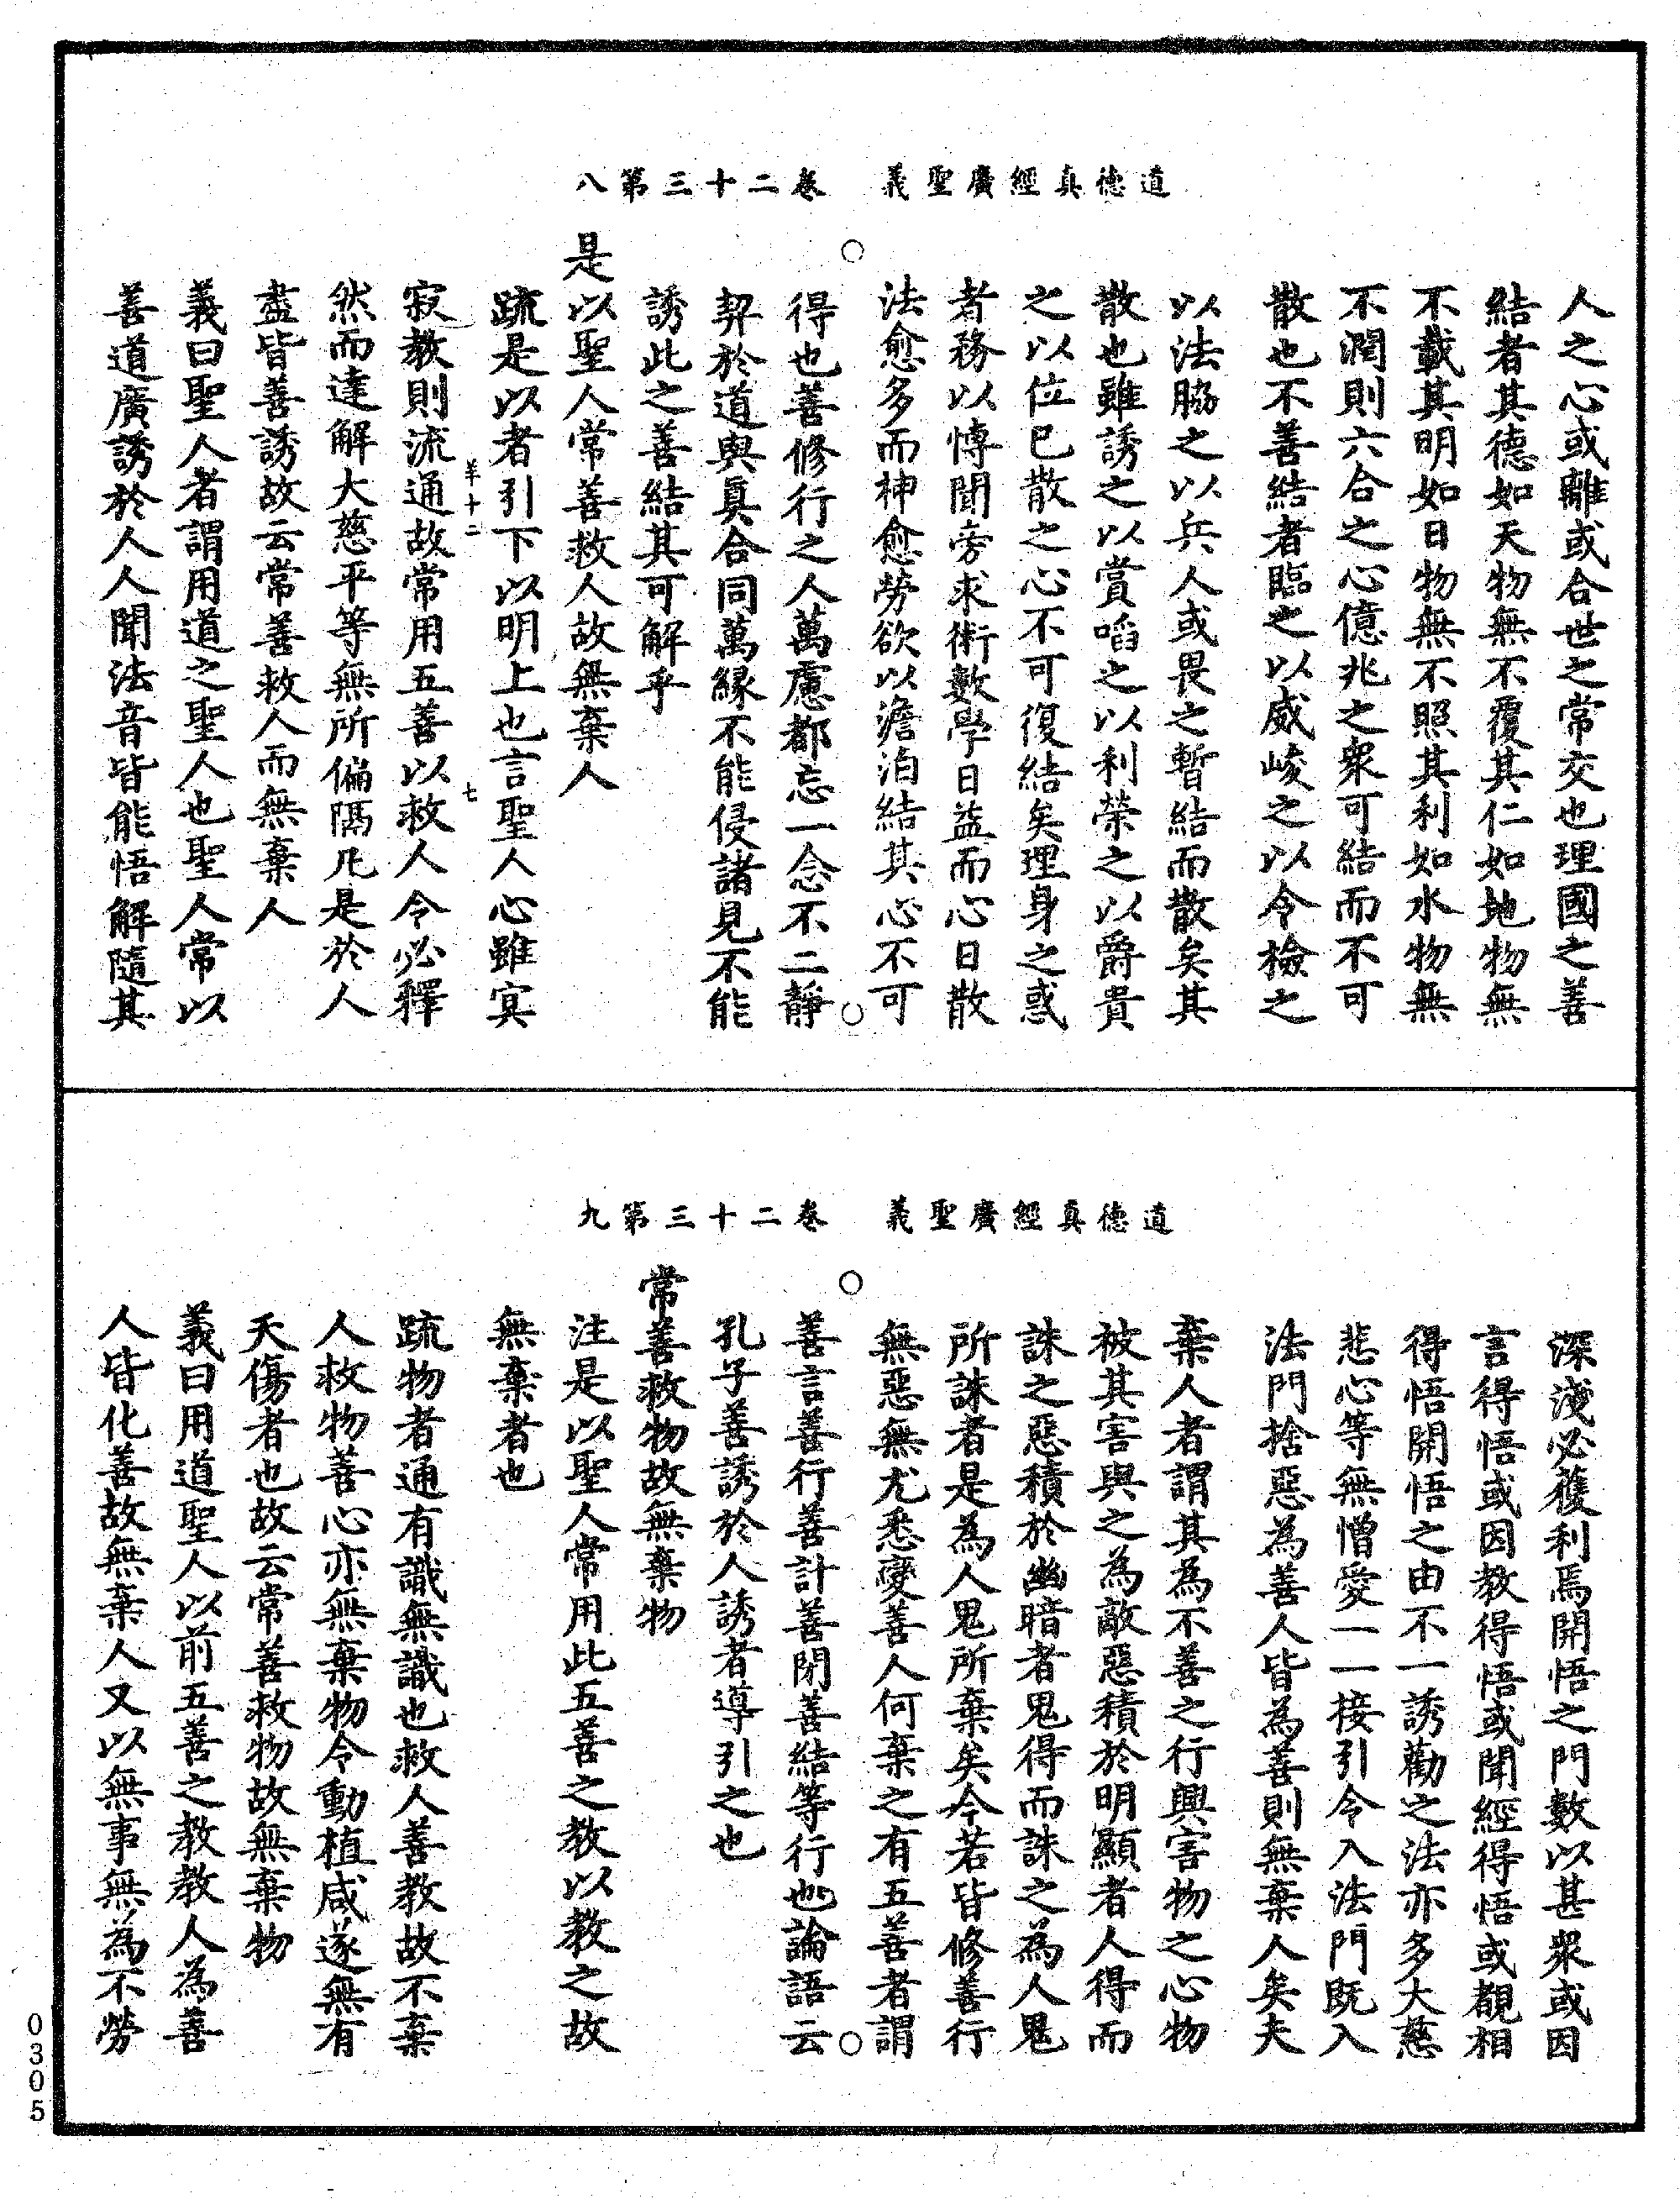 道德真經廣聖義　卷二十三第八
人之心或離或合世之常交也理國之善
結者其德如天物無不覆其仁如地物無
不載其明如日物無不照其利如水物無
不潤則六合之心億兆之衆可結而不可
散也不善結者臨之以威峻之以令檢之
以法脇之以兵人或畏之暫結而散矣其
散也雖誘之以賞啗之以利榮之以爵貴
之以位巳散之心不可復結矣理身之惑
者務以愽聞旁求術數學日益而心日散
法愈多而神愈勞欲以澹泊結其心不可
得也善修行之人萬慮都忘一念不二靜
契於道與真合同萬緣不能侵諸見不能
誘此之善結其可解乎
是以聖人常善救人故無棄人
疏是以者引下以明上也言聖人心雖㝠
羊十二　七
寂教則流通故常用五善以救人令必釋
然而達解大慈平等無所偏隔凡是於人
盡皆善誘故云常善救人而無棄人
義曰聖人者謂用道之聖人也聖人常以
善道廣誘於人人聞法音皆能悟解隨其
道德真經廣聖義　卷二十三第九
深淺必獲利焉開悟之門數以甚衆或因
言得悟或因教得悟或聞經得悟或覩相
得悟開悟之由不一誘勸之法亦多大慈
悲心等無憎愛一一接引令入法門既入
法門捨惡為善人皆為善則無棄人矣夫
棄人者謂其為不善之行興害物之心物
被其害與之為敵惡積於明顯者人得而
誅之惡積於幽暗者鬼得而誅之為人鬼
所誅者是為人鬼所棄矣今若皆修善行
無惡無尤悉變善人何棄之有五善者謂
善言善行善計善閉善結等行也論語云
孔子善誘於人誘者導引之也
常善救物故無棄物
注是以聖人常用此五善之教以教之故
無棄者也
疏物者通有識無識也救人善教故不棄
人救物善心亦無棄物令動植咸遂無有
夭傷者也故云常善救物故無棄物
義曰用道聖人以前五善之教教人為善
人皆化善故無棄人又以無事無為不勞
0305